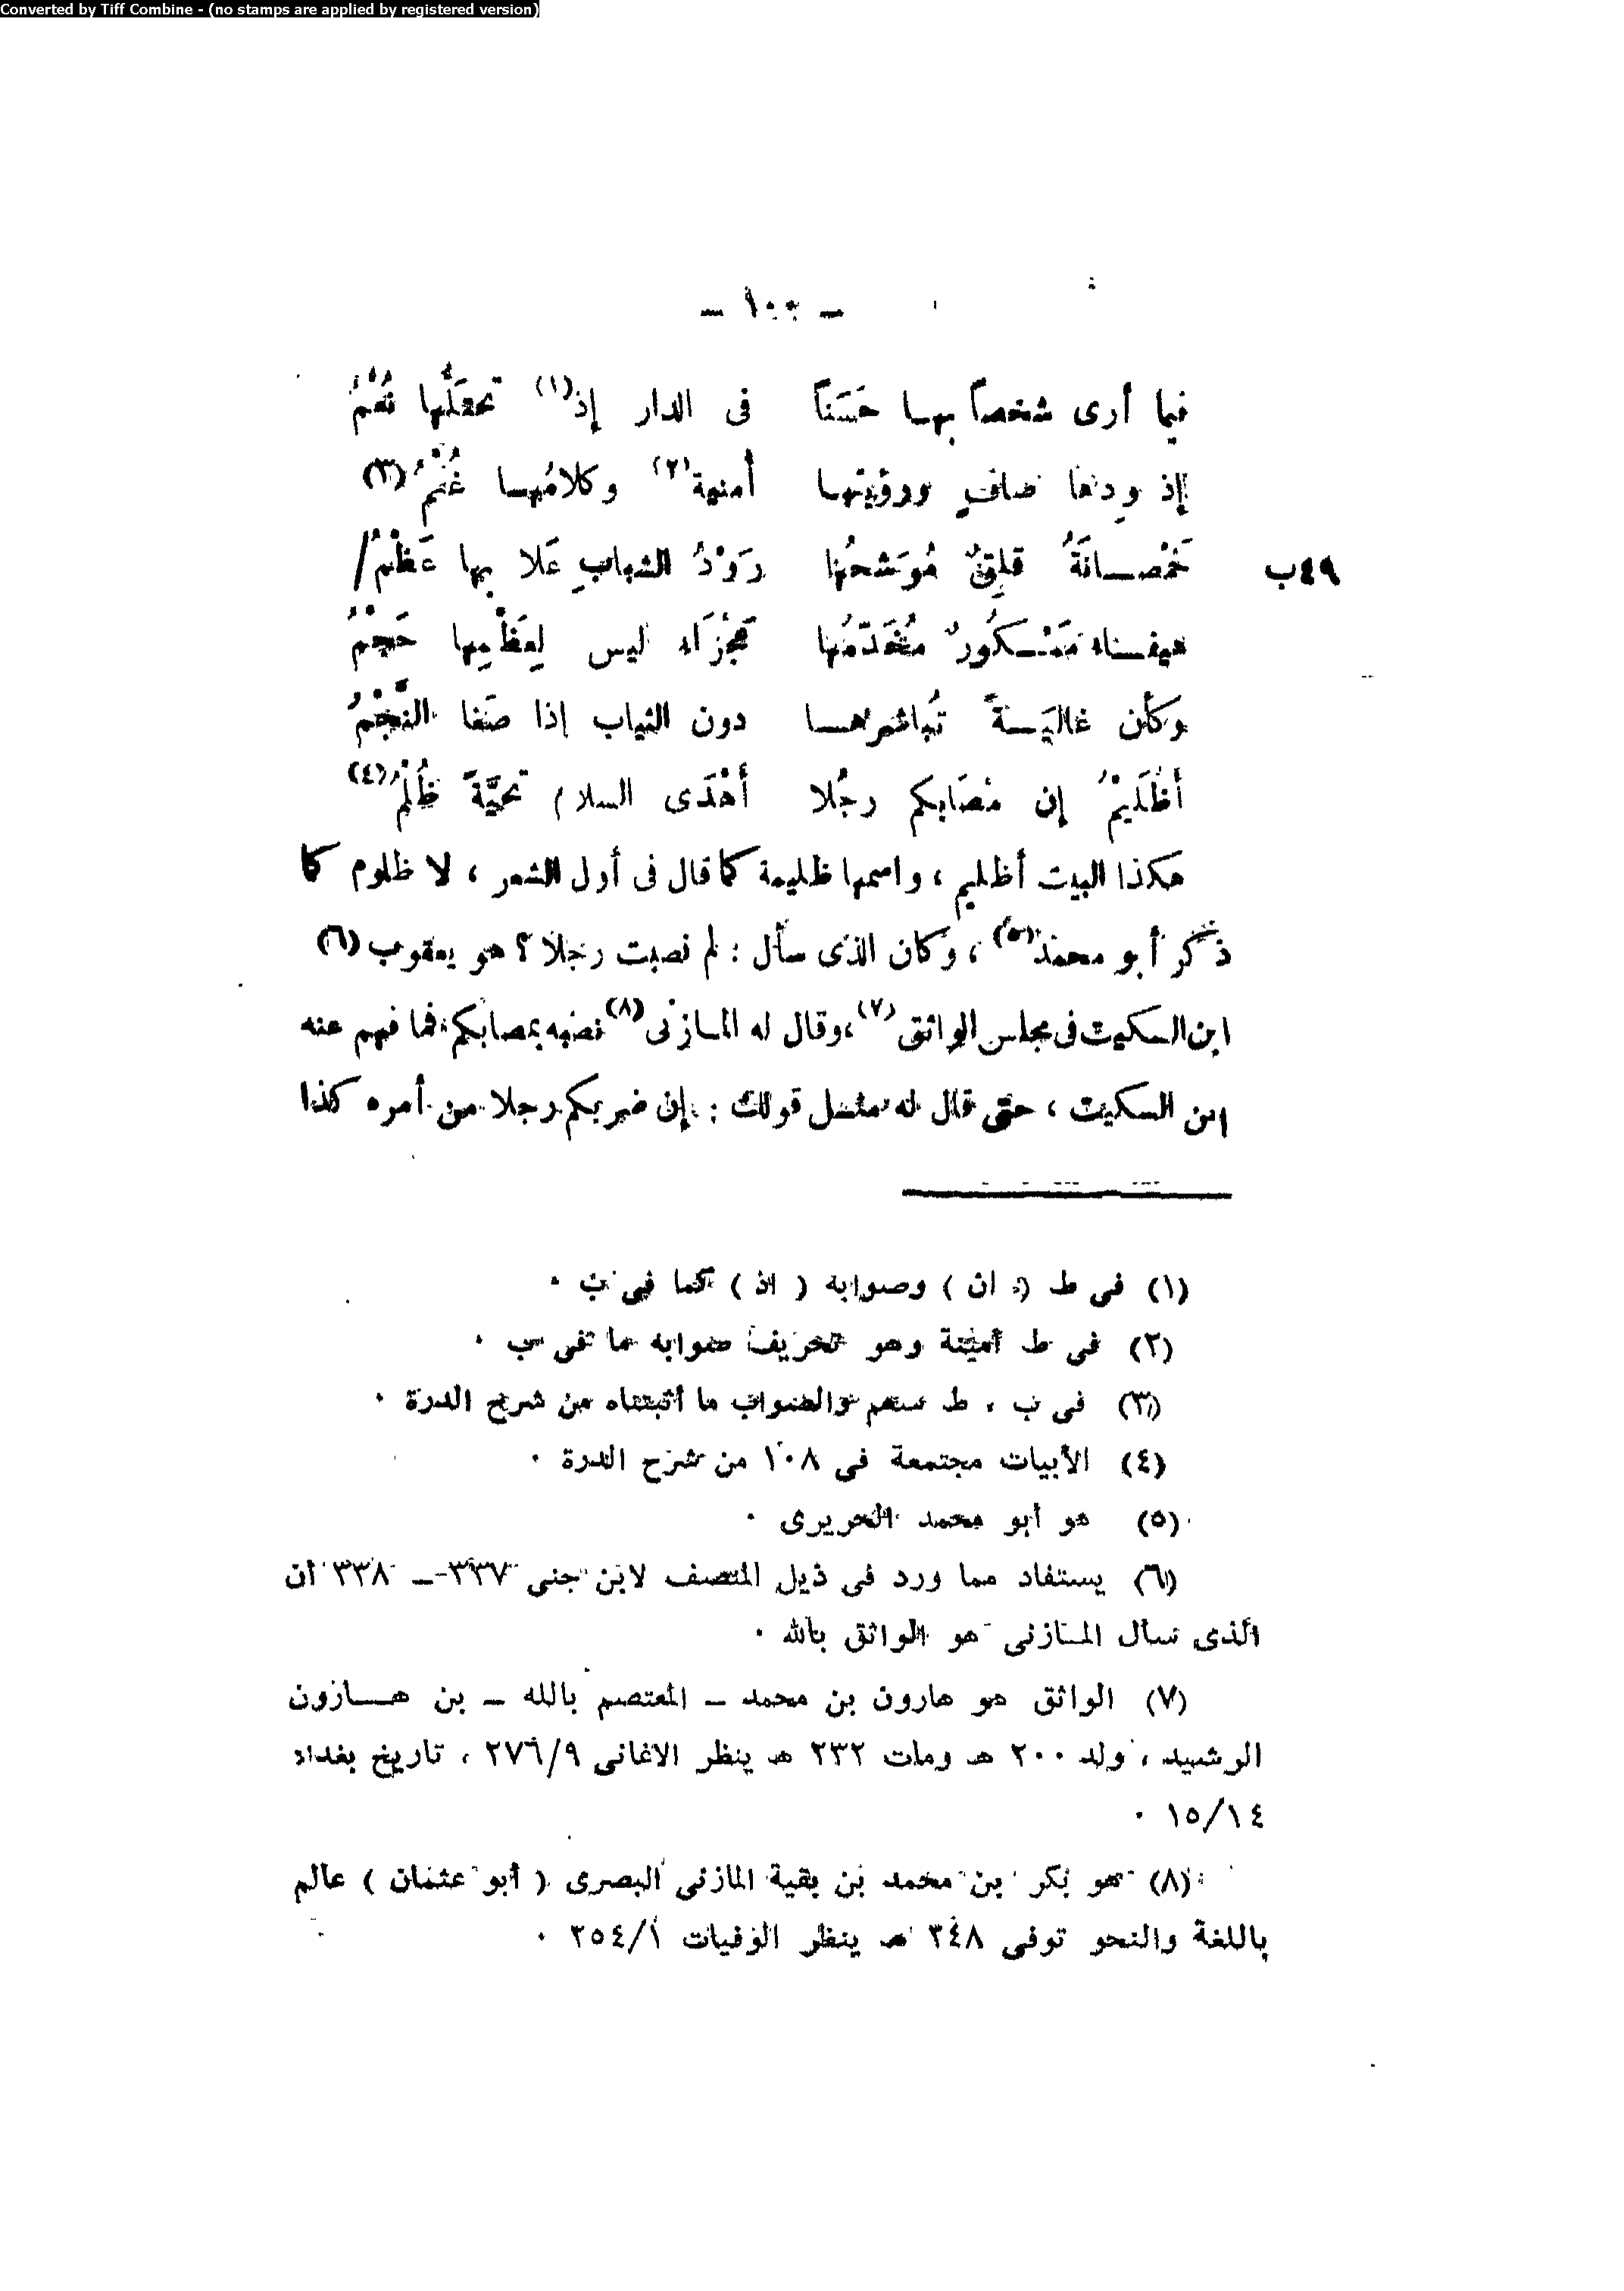 Converted by Tiff Combine - (no stamps are applied by registered version)
– ١٠٠ –
فيما أرى شخصاً بهـا حَسَناً في الدار إذ(١) تحتلّها نُعْمُ
إذ ودها صافٍ ورؤيتهـا أمنية(٢) وكلامُهـا غُنْمُ(٣)
٤٩ب خَمْصـانَةٌ قلِقٌ مُوَشحُها رَوْدُ الشبابِ عَلا بها عَظْمُ/
هيفـاء مَمْـكُورٌ مُخَدّمُها عَجْزَاء ليس لِعَظْمِها حَجْمُ
وكأن غاليَـةً تُباشرهـا دون الثياب إذا صَفا النَّجْمُ
أظُلَيْمُ إن مُصَابكم رجُلا أهْدَى السلام تحيَّةً ظُلْمُ(٤)
هكذا البيت أظليم، واسمها ظليمة كما قال في أول الشعر، لا ظلوم كما
ذكر أبو محمد(٥)، وكان الذي سأل: لم نصبت رجلا؟ هو يعقوب(٦)
ابن السكيت في مجلس الواثق(٧)، وقال له المـازني(٨) نصبه بمصابكم، فما فهم عنه
ابن السكيت، حتى قال له مثـل قولك: إن ضربكم رجلا من أمره كذا
(١) في ط (ان) وصوابه (اذ) كما في ب.
(٢) في ط أمينة وهو تحريف صوابه ما في ب.
(٣) في ب، ط والصواب ما أثبتناه من شرح الدرة.
(٤) الأبيات مجتمعة في ١٠٨ من شرح الدرة.
(٥) هو أبو محمد الحريرى.
(٦) يستفاد مما ورد في ذيل المنصف لابن جني ٣٣٧ – ٣٣٨ أن
الذى سأل المـازنى هو الواثق بالله.
(٧) الواثق هو هارون بن محمد – المعتصم بالله – بن هـارون
الرشيد، ولد ٢٠٠ هـ ومات ٢٣٢ هـ ينظر الاغانى ٢٧٦/٩، تاريخ بغداد
١٥/١٤.
(٨) هو بكر بن محمد بن بقية المازنى البصرى (أبو عثمان) عالم
باللغة والنحو توفى ٢٤٨ هـ ينظر الوفيات ٢٥٤/١.